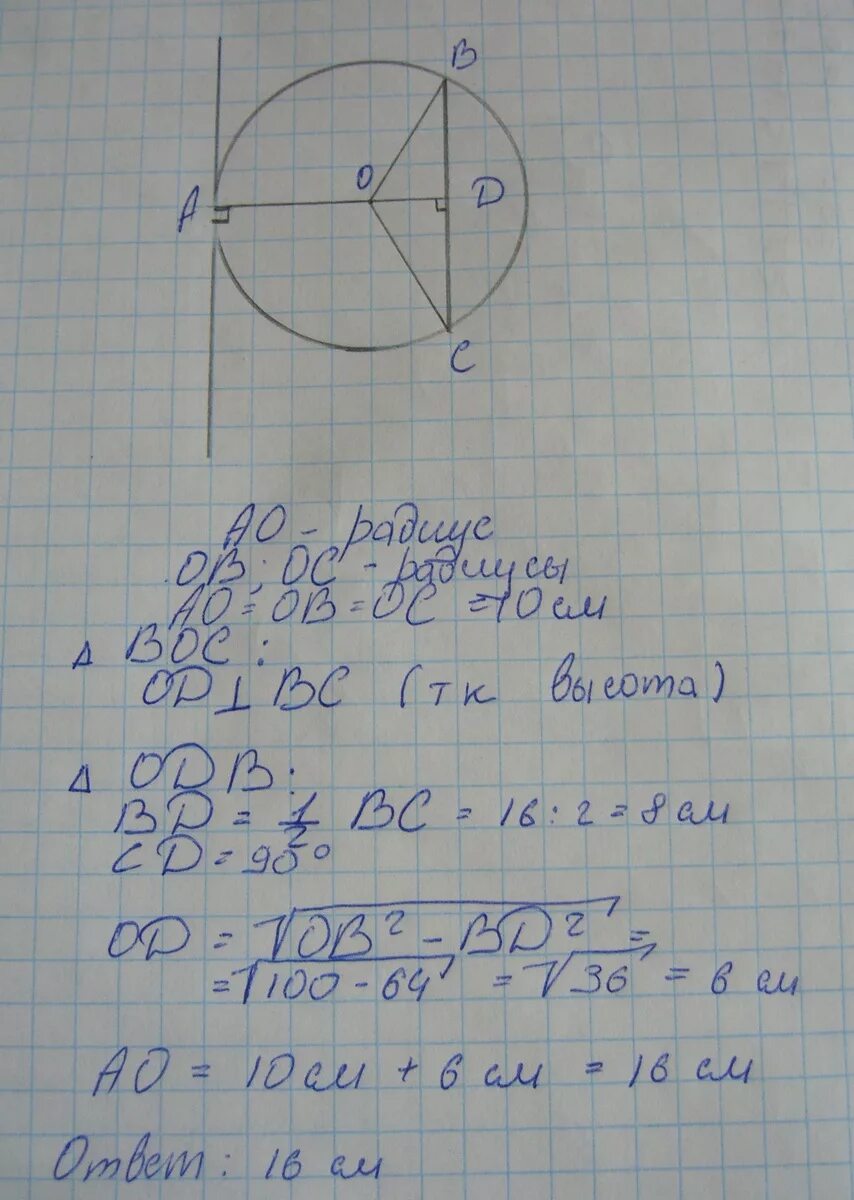 B
O
A
D
C
АО - радиус
ОВ; ОС - радиусы
АО = ОВ = ОС = 10 см
△ ВОС:
OD ⊥ ВС (тк высота)
△ ODB:
BD = 1/2 BC = 16 : 2 = 8 см
∠D = 90°
OD = √OB² - BD² =
= √100 - 64 = √36 = 6 см
АО = 10 см + 6 см = 16 см
Ответ: 16 см